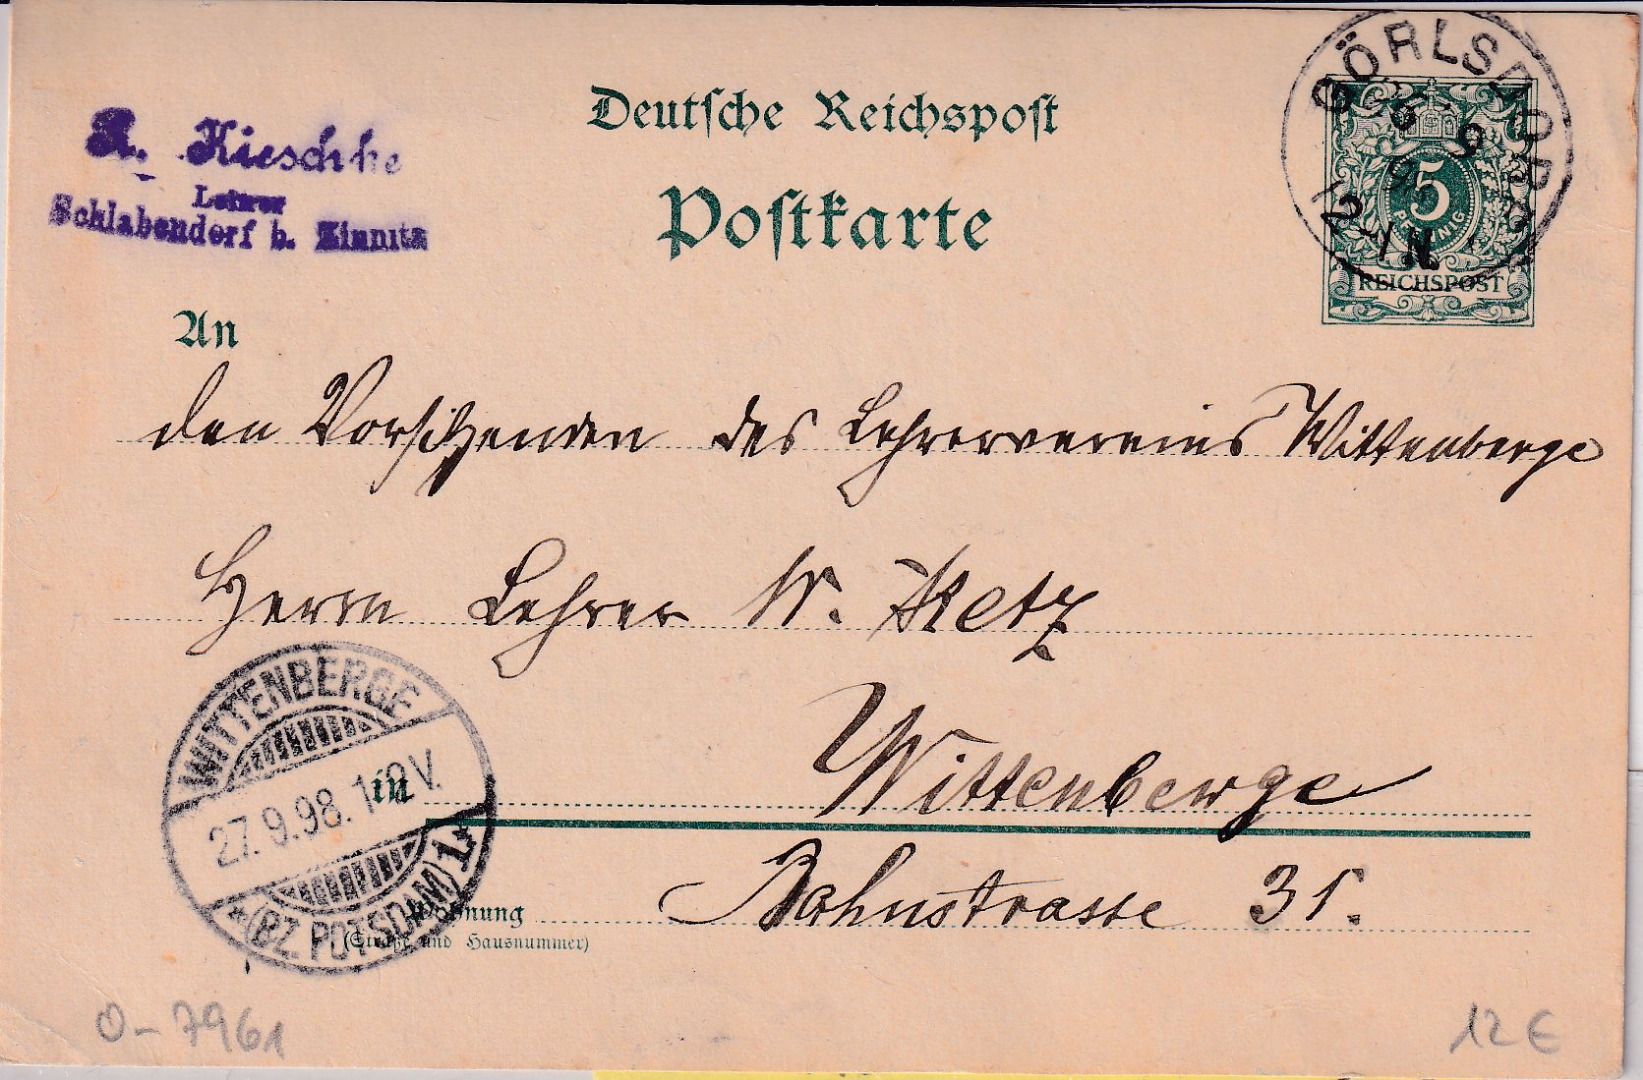 Deutsche Reichspost
Postkarte
Lehrer
Schlabendorf b. Zinnitz
GÖRLSDORF
26 9
98
2-3 N
5
PFENNIG
REICHSPOST
An
den Vorsitzenden des Lehrervereins Wittenberge
Herrn Lehrer W. Metz
in Wittenberge
Wohnung Bahnstrasse 31.
(Straße und Hausnummer)
WITTENBERGE
27.9.98. 1-2V.
*(BZ. POTSDAM)1*
O-7961
12 €